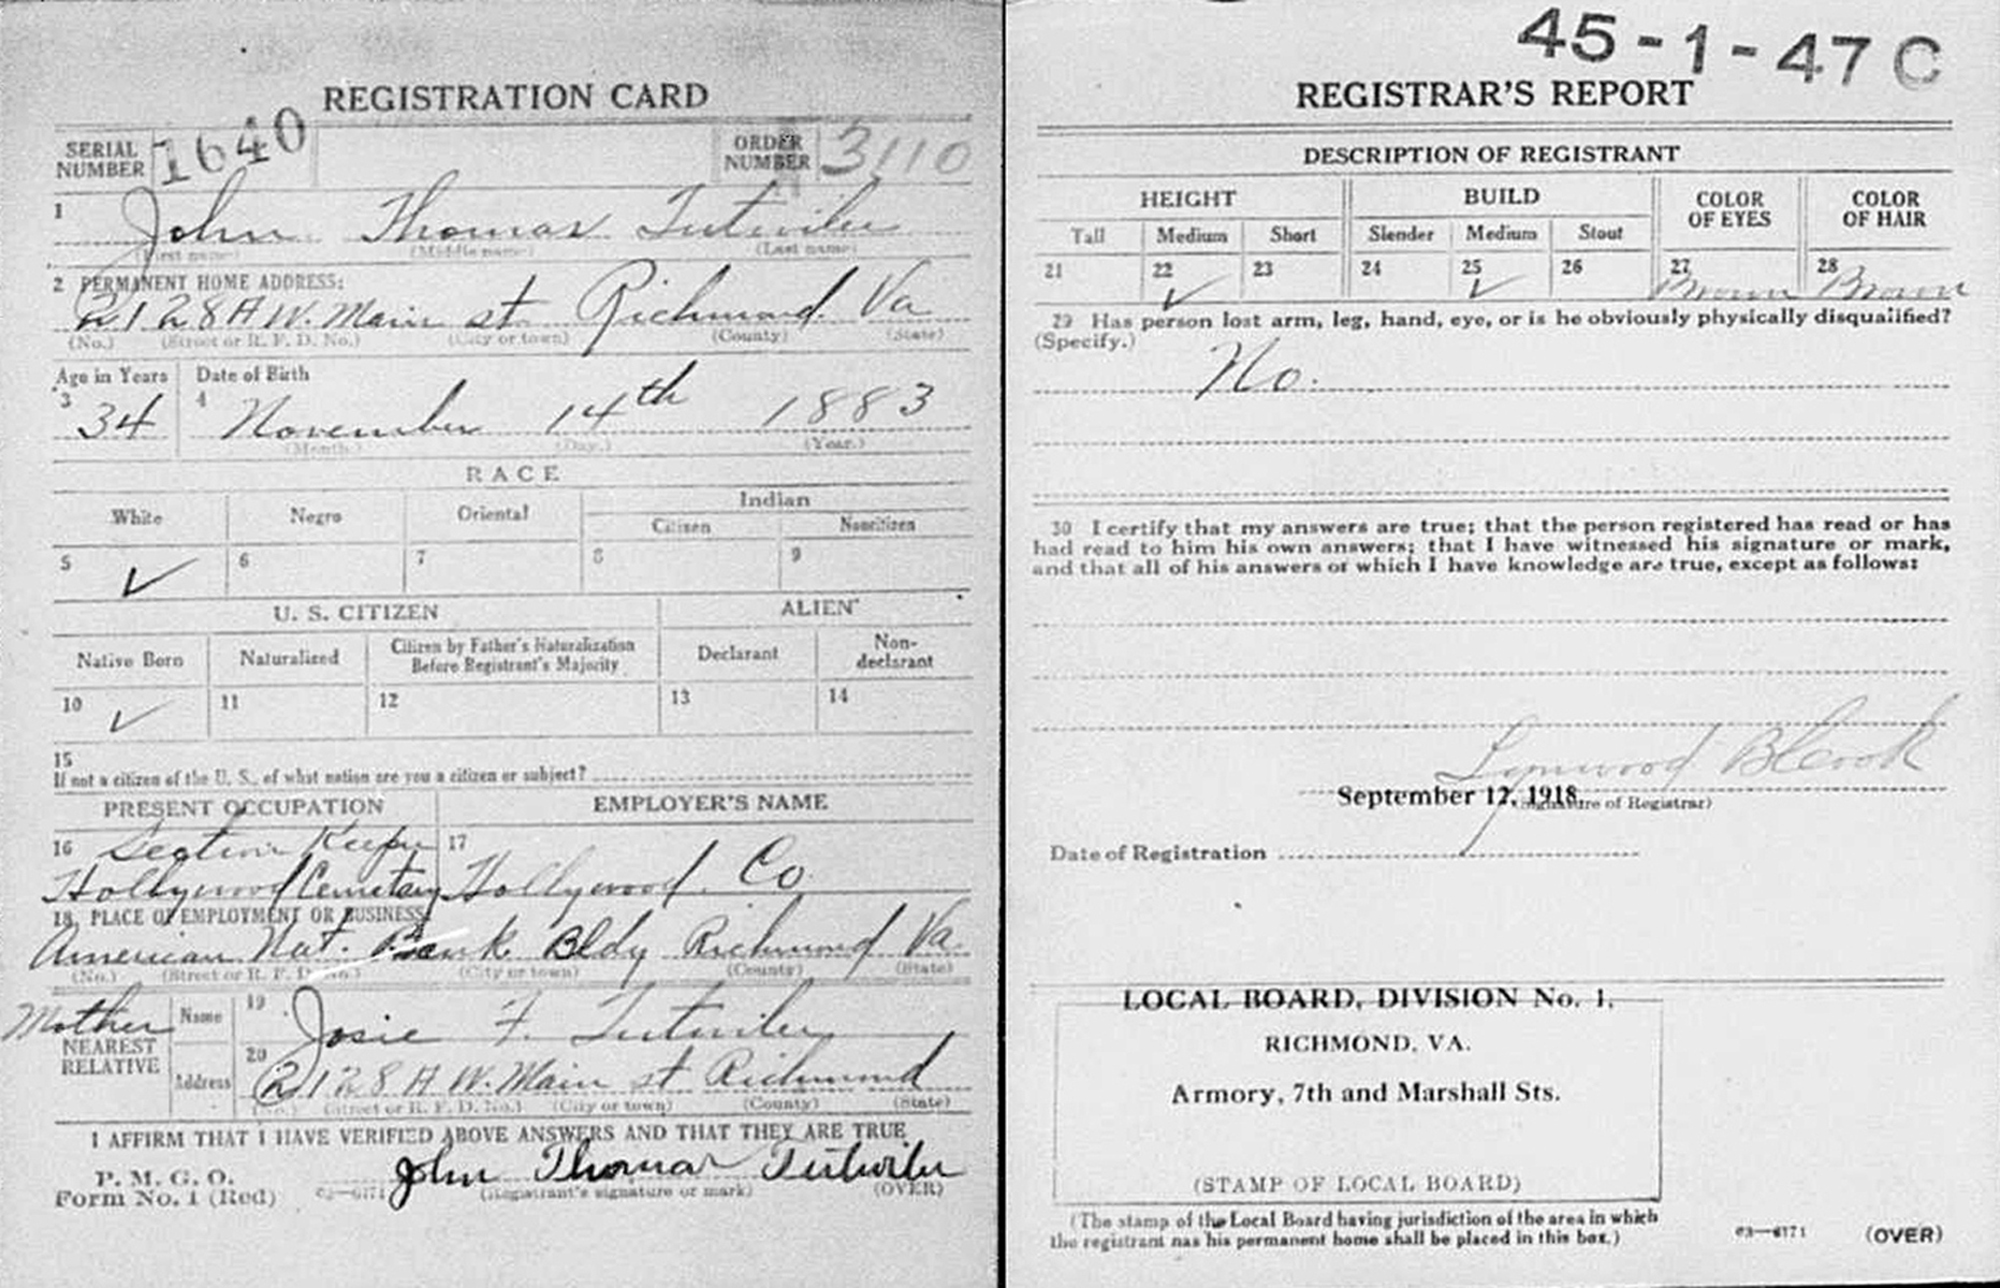 REGISTRATION CARD
SERIAL NUMBER 1640 ORDER NUMBER 3110
1 John Thomas Tutwiler
(First name) (Middle name) (Last name)
2 PERMANENT HOME ADDRESS:
2128A W. Main st Richmond Va
(No.) (Street or R. F. D. No.) (City or town) (County) (State)
Age in Years Date of Birth
3 34 4 November 14th 1883
(Month.) (Day.) (Year.)
RACE
White Negro Oriental Indian
Citizen Noncitizen
5 ✓ 6 7 8 9
U. S. CITIZEN ALIEN
Native Born Naturalized Citizen by Father's Naturalization Before Registrant's Majority Declarant Non-declarant
10 ✓ 11 12 13 14
15
If not a citizen of the U. S., of what nation are you a citizen or subject?
PRESENT OCCUPATION EMPLOYER'S NAME
16 Section Keeper 17
Hollywood Cemetary Hollywood Co
18 PLACE OF EMPLOYMENT OR BUSINESS
American Nat. Bank Bldg Richmond Va.
(No.) (Street or R. F. D. No.) (City or town) (County) (State)
Mother Name 19 Josie F. Tutwiler
NEAREST RELATIVE
Address 20 2128 A W. Main st Richmond
(No.) (Street or R. F. D. No.) (City or town) (County) (State)
I AFFIRM THAT I HAVE VERIFIED ABOVE ANSWERS AND THAT THEY ARE TRUE
P. M. G. O.
Form No. 1 (Red) 03—6171 John Thomas Tutwiler
(Registrant's signature or mark) (OVER)
45-1-47 C
REGISTRAR'S REPORT
DESCRIPTION OF REGISTRANT
HEIGHT BUILD COLOR OF EYES COLOR OF HAIR
Tall Medium Short Slender Medium Stout
21 22 ✓ 23 24 25 ✓ 26 27 Brown 28 Brown
29 Has person lost arm, leg, hand, eye, or is he obviously physically disqualified?
(Specify.)
No.
30 I certify that my answers are true; that the person registered has read or has
had read to him his own answers; that I have witnessed his signature or mark,
and that all of his answers of which I have knowledge are true, except as follows:
Lynwood
September 12, 1918
(Signature of Registrar)
Date of Registration
LOCAL BOARD, DIVISION No. 1,
RICHMOND, VA.
Armory, 7th and Marshall Sts.
(STAMP OF LOCAL BOARD)
(The stamp of the Local Board having jurisdiction of the area in which
the registrant has his permanent home shall be placed in this box.)
03—6171 (OVER)